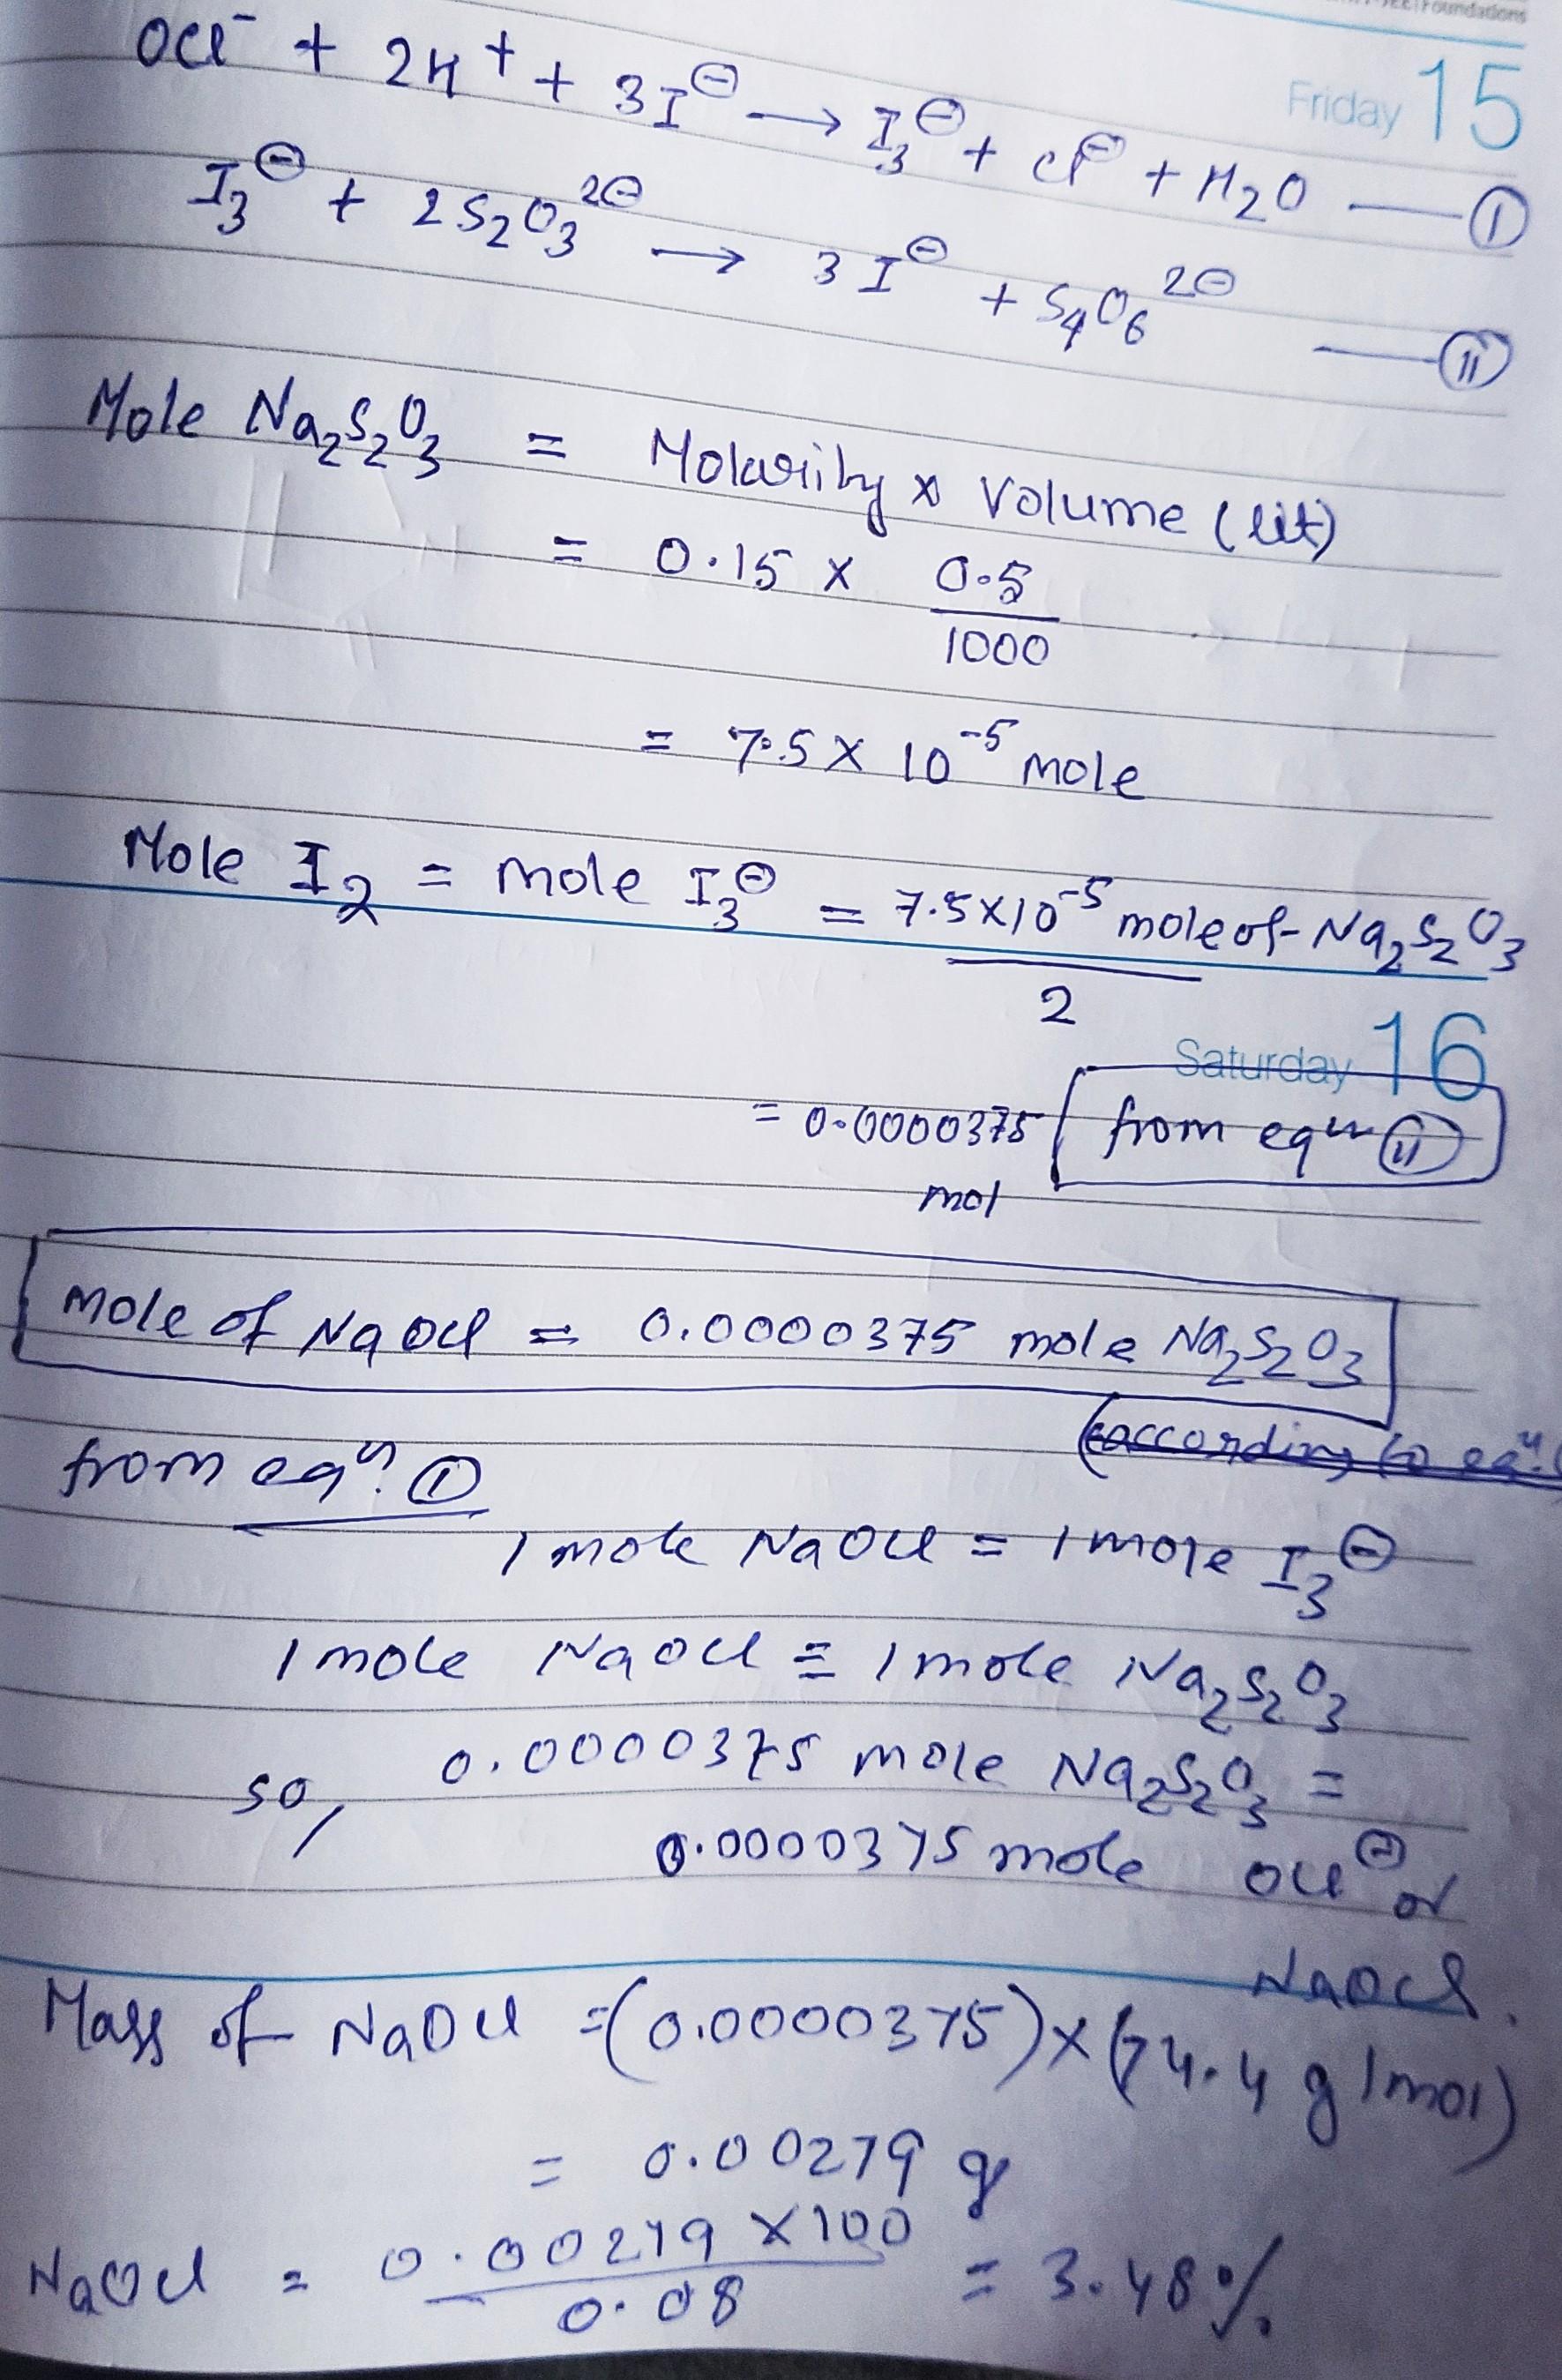 JEE | Foundations
Friday 15
OCl⁻ + 2H⁺ + 3I⊖ → I₃⊖ + Cl⊖ + H₂O — (I)
I₃⊖ + 2S₂O₃²⊖ → 3I⊖ + S₄O₆²⊖ — (II)
Mole Na₂S₂O₃ = Molarity × Volume (lit)
= 0.15 × 0.5/1000
= 7.5 × 10⁻⁵ mole
Mole I₂ = mole I₃⊖ = 7.5×10⁻⁵ mole of Na₂S₂O₃ / 2
Saturday 16
= 0.0000375 mol
from eqn (II)
mole of NaOCl = 0.0000375 mole Na₂S₂O₃
(according to eqn.
from eqn. (I)
1 mole NaOCl = 1 mole I₃⊖
1 mole NaOCl ≡ 1 mole Na₂S₂O₃
so, 0.0000375 mole Na₂S₂O₃ =
0.0000375 mole OCl⊖ or
NaOCl.
Mass of NaOCl = (0.0000375) × (74.4 g/mol)
= 0.00279 g
NaOCl = 0.00279 × 100 / 0.08 = 3.48 %